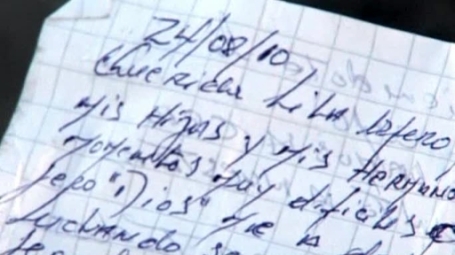 24/08/10
Querida Lila Espero
mis Hijas y mis Herman
momentos muy dificiles
Pero "Dios" me a
luchando